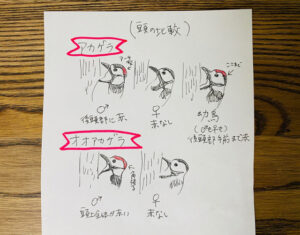 (頭の比較)
アカゲラ
♂
後頭部に赤
♀
赤なし
幼鳥
(♂も♀も)
後頭部〜前まで赤
オオアカゲラ
♂
頭全体が赤い
♀
赤なし